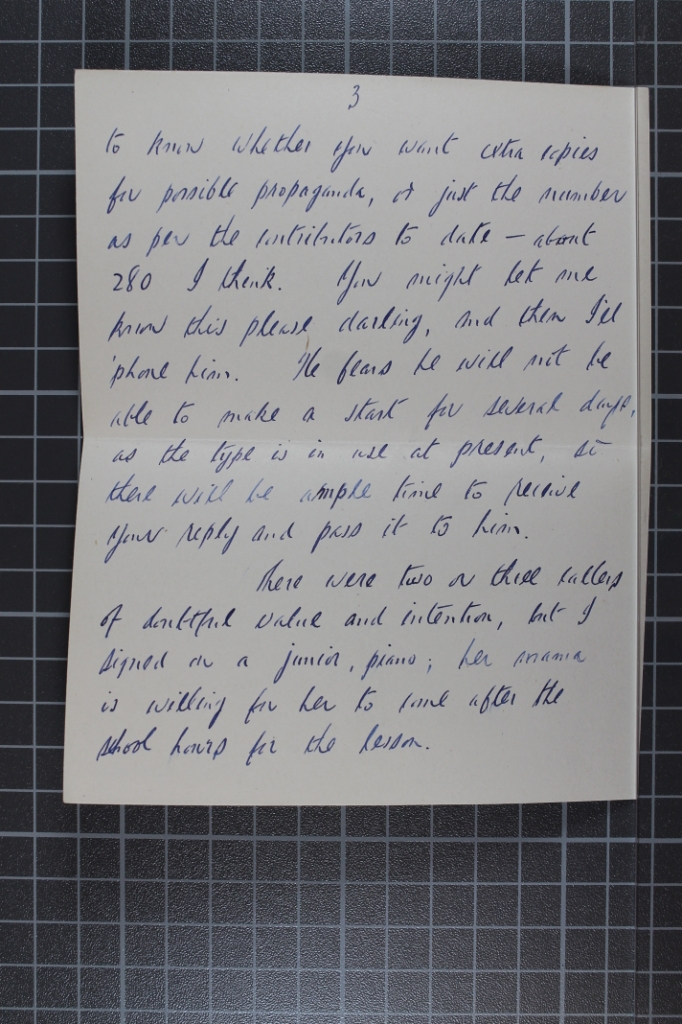 3
to know whether you want extra copies
for possible propaganda, or just the number
as per the contributors to date — about
280 I think. You might let me
know this please darling, and then I'll
'phone him. He fears he will not be
able to make a start for several days,
as the type is in use at present, so
there will be ample time to receive
your reply and pass it to him.
There were two or three callers
of doubtful value and intention, but I
signed on a junior, piano; her mama
is willing for her to come after the
school hours for the lesson.